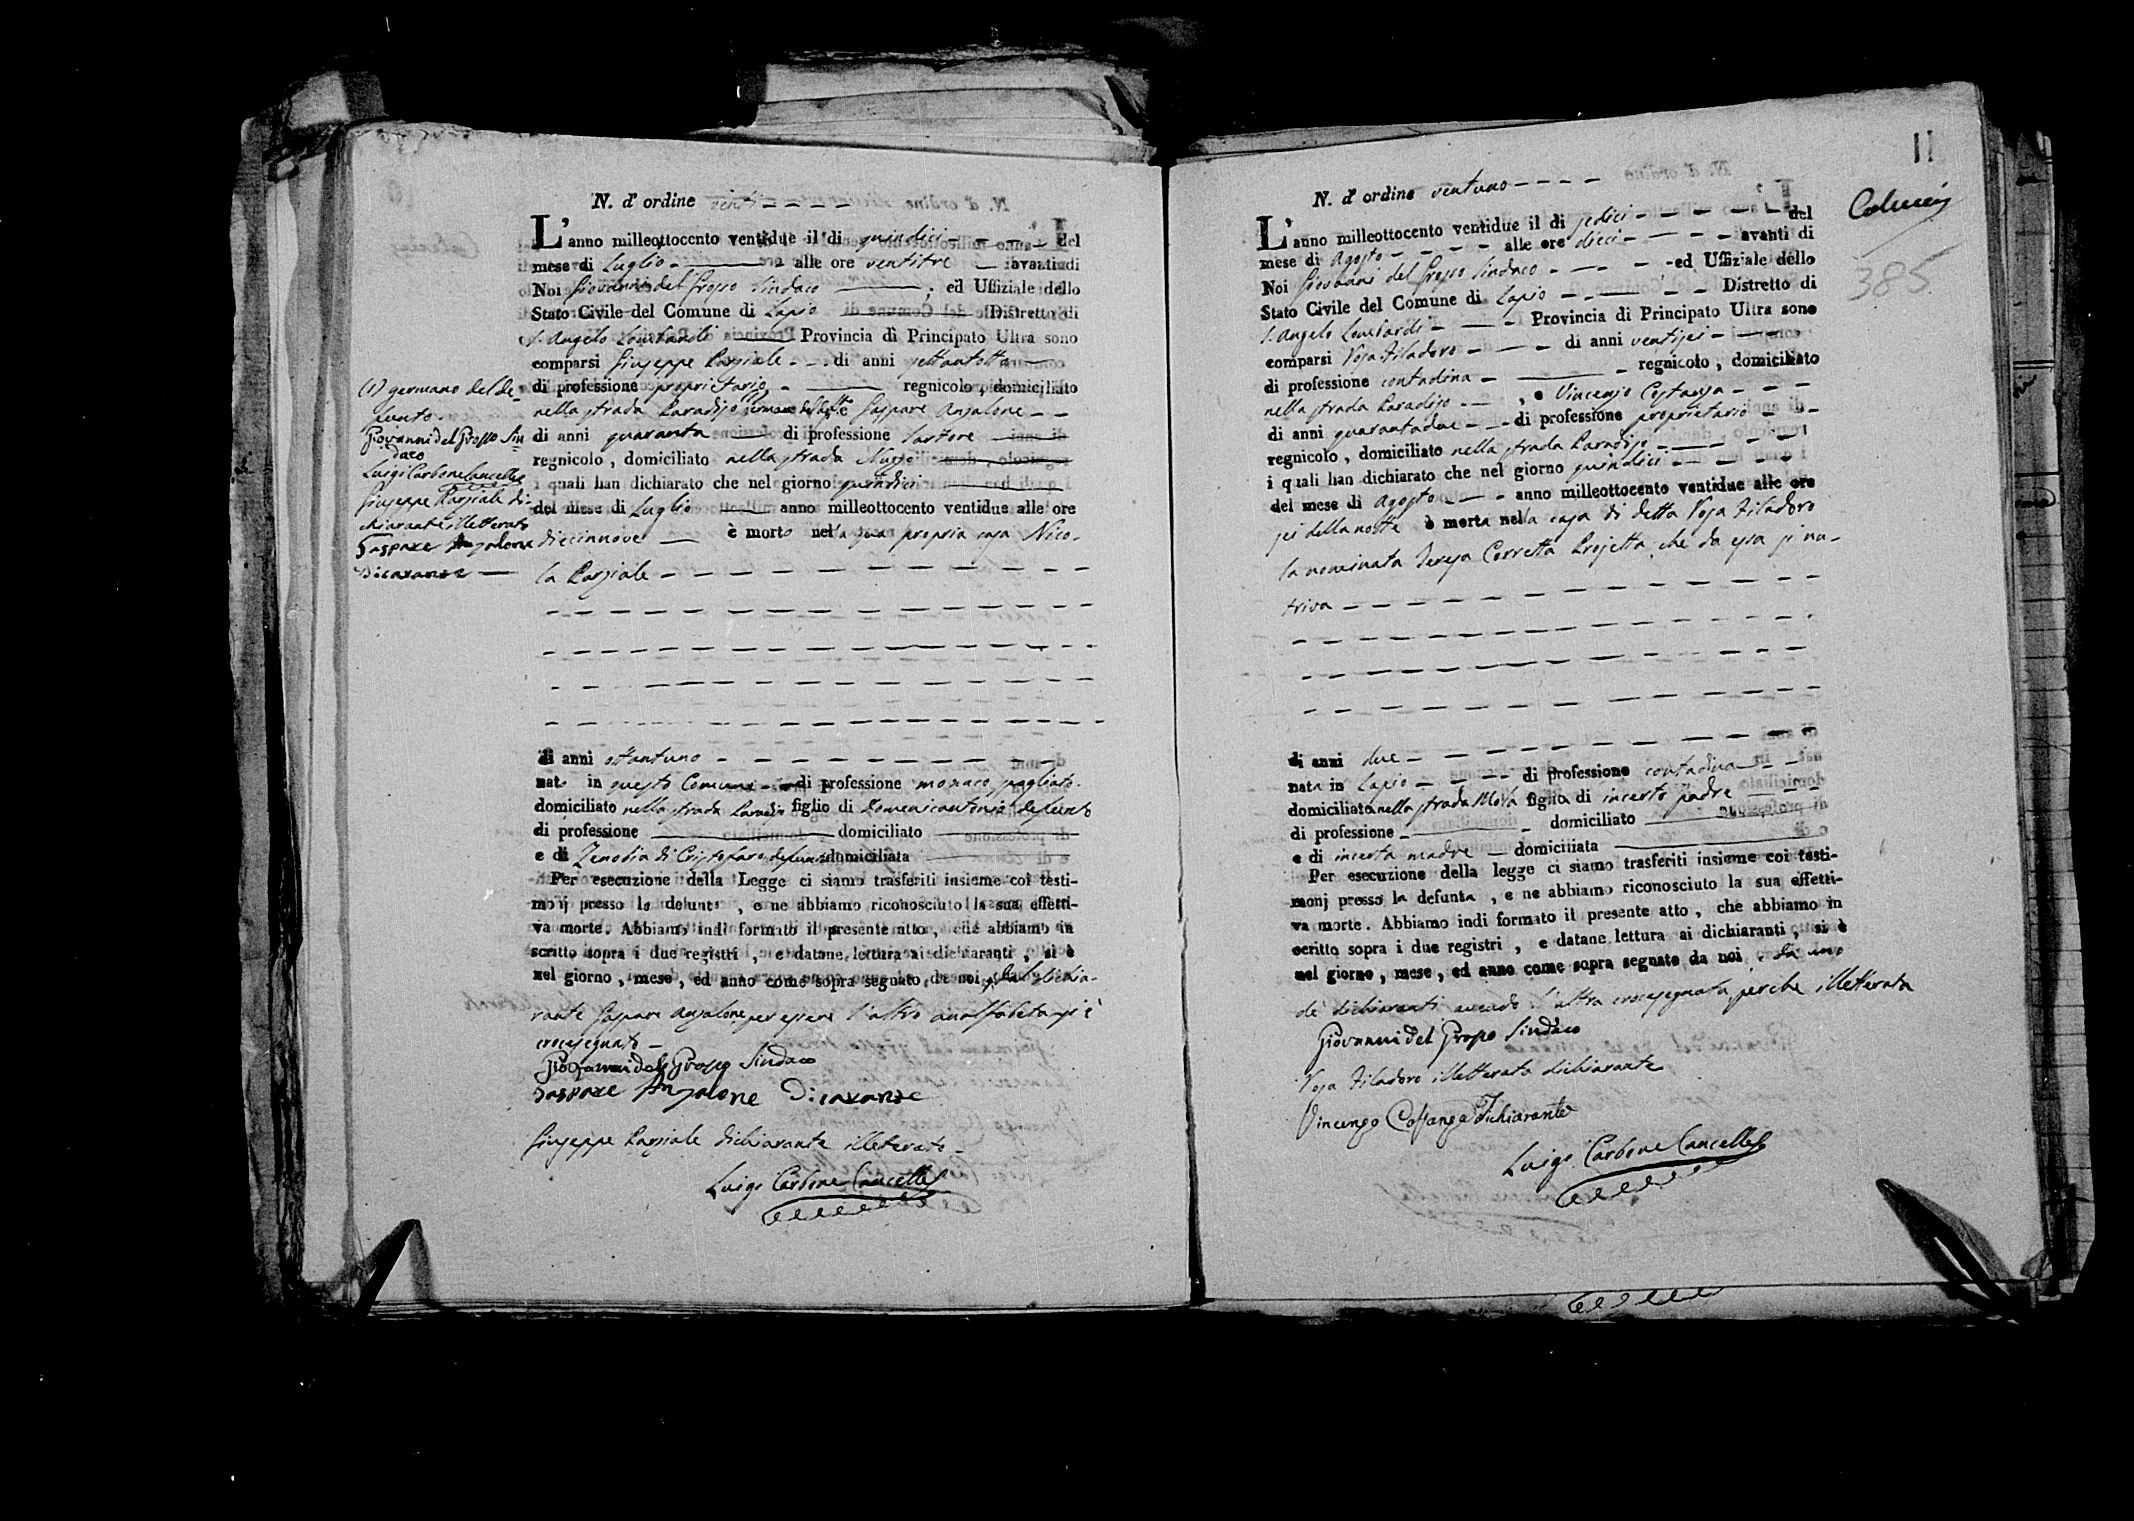 N. d'ordine venti
L'anno milleottocento ventidue il di quindici del
mese di Luglio alle ore ventitre avanti di
Noi Giovanni del Grosso Sindaco ed Uffiziale dello
Stato Civile del Comune di Lapio Distretto di
S. Angelo Lombardi Provincia di Principato Ultra sono
comparsi Giuseppe Parziale di anni settantotto
di professione proprietario regnicolo, domiciliato
nella strada Paradiso Gaspare Anzalone
di anni quaranta di professione Sartore
regnicolo, domiciliato nella strada
i quali han dichiarato che nel giorno quindici
del mese di Luglio anno milleottocento ventidue alle ore
diecinnove è morto nella sua propria casa Nico-
la Parziale
di anni ottantuno
nato in questo Comune di professione monaco
domiciliato nella strada Paradiso figlio di Domenicantonio defunto
di professione domiciliato
e di Zenobia di Cristofaro defunta domiciliata
Per esecuzione della Legge ci siamo trasferiti insieme coi testi-
monj presso la defunta, e ne abbiamo riconosciuto la sua effetti-
va morte. Abbiamo indi formato il presente atto, che abbiamo in
scritto sopra i due registri, e datane lettura ai dichiaranti, si è
nel giorno, mese, ed anno come sopra segnato da noi, e dal dichia-
rante Gaspare Anzalone per essere l'altro analfabeta si è
crocesegnato
Giovanni del Grosso Sindaco
Gaspare Anzalone Dicarante
Giuseppe Parziale dichiarante illetterato
Luigi Carbone Cancelle
(1) germano del de-
funto.
Giovanni del Grosso Sin
daco
Luigi Carbone Cancelle
Giuseppe Parziale di-
chiarante illetterato
Gaspare Anzalone
Dicarante
11
N. d'ordine ventuno
Colucci
385
L'anno milleottocento ventidue il di sedici del
mese di Agosto alle ore dieci avanti di
Noi Giovanni del Grosso Sindaco ed Uffiziale dello
Stato Civile del Comune di Lapio Distretto di
S. Angelo Lombardi Provincia di Principato Ultra sono
comparsi Rosa Filadoro di anni ventisei
di professione contadina regnicolo, domiciliato
nella strada Paradiso, e Vincenzo Costanza
di anni quarantadue di professione proprietario
regnicolo, domiciliato nella strada Paradiso
i quali han dichiarato che nel giorno quindici
del mese di Agosto anno milleottocento ventidue alle ore
sei della notte è morta nella casa di detta Rosa Filadoro
la nominata Teresa Corretta Projetta, che da essa si nu-
triva
di anni due
nata in Lapio di professione contadina
domiciliata nella strada figlia di incerto padre
di professione domiciliato
e di incerta madre domiciliata
Per esecuzione della legge ci siamo trasferiti insieme coi testi-
monj presso la defunta, e ne abbiamo riconosciuto la sua effetti-
va morte. Abbiamo indi formato il presente atto, che abbiamo in
scritto sopra i due registri, e datane lettura ai dichiaranti, si è
nel giorno, mese, ed anno come sopra segnato da noi, e da uno
de' dichiaranti avendo l'altra crocesegnata perche illetterata
Giovanni del Grosso Sindaco
Rosa Filadoro illetterata dichiarante
Vincenzo Costanza Dichiarante
Luigi Carbone Cancelle